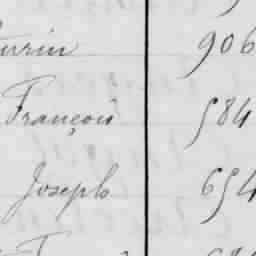 urin 906
François 584
Joseph 654